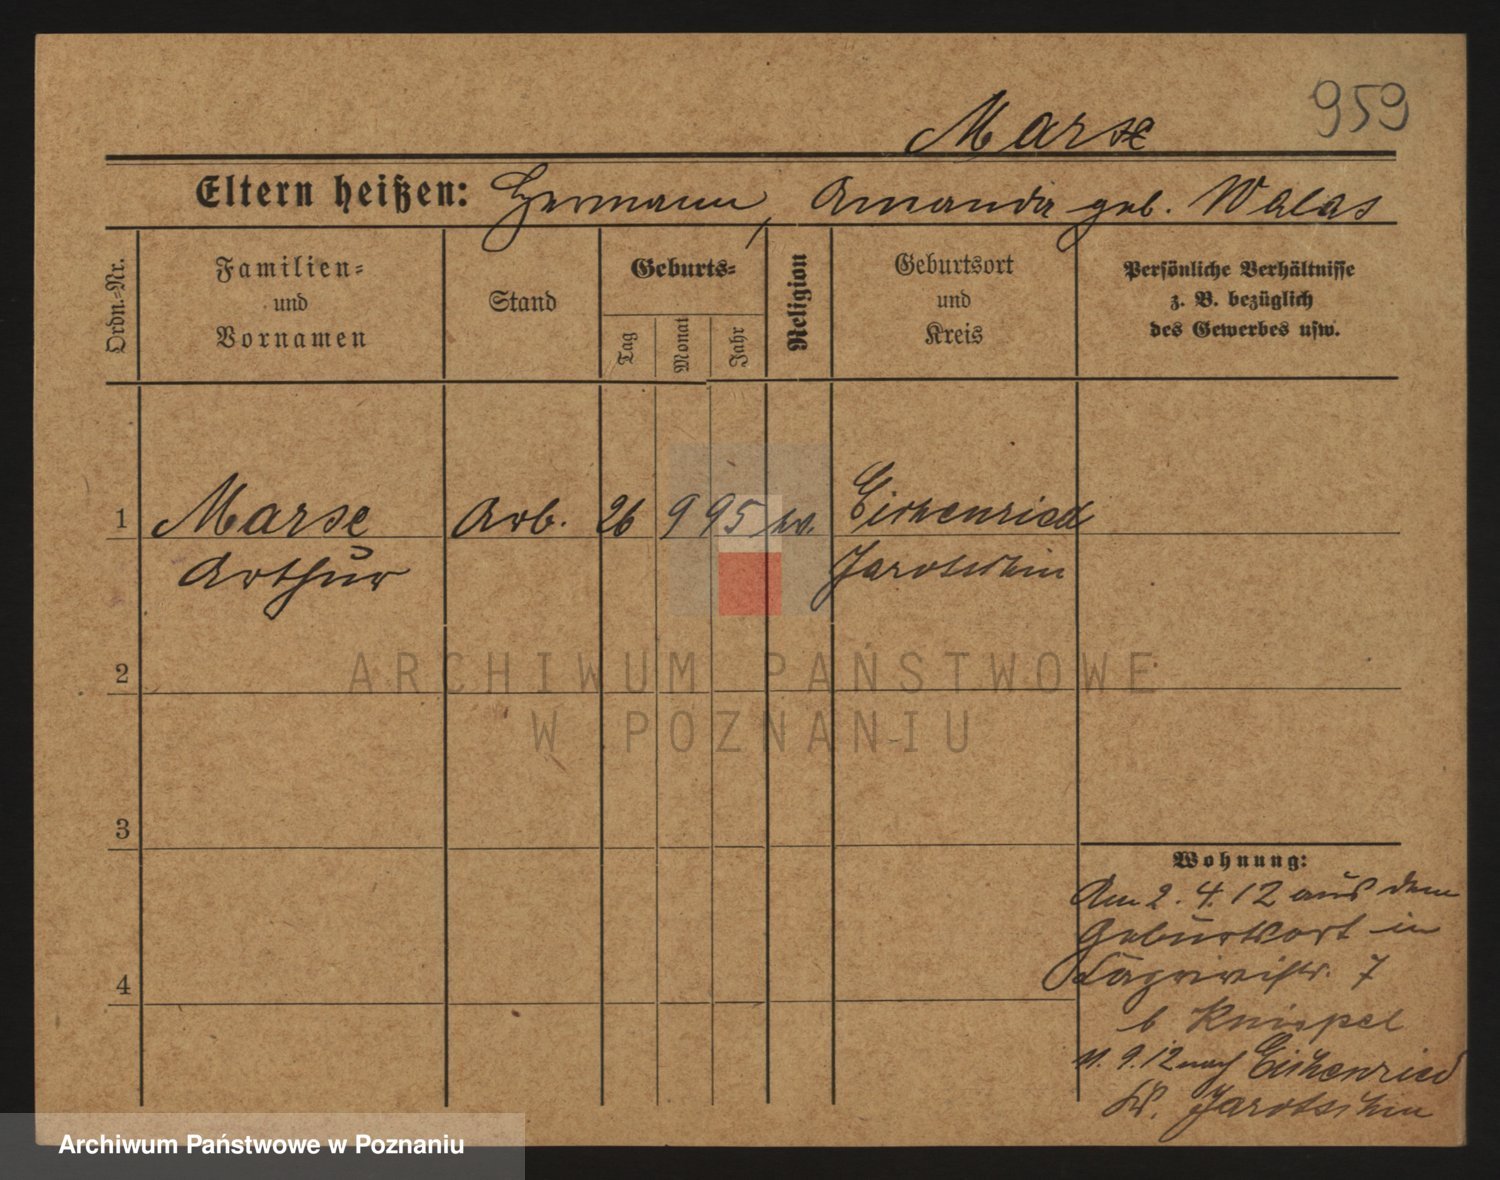 959
Marse
Eltern heißen: Hermann, Amanda geb. Walas
Ordn.-Nr.
Familien-
und
Vornamen
Stand
Geburts-
Tag
Monat
Jahr
Religion
Geburtsort
und
Kreis
Persönliche Verhältnisse
z. B. bezüglich
des Gewerbes usw.
1 Marse Arb. 26 9 95 Eichenried
Arthur Jarotschin
2
ARCHIWUM PAŃSTWOWE
W POZNANIU
3
4
Wohnung:
Am 2. 4. 12 aus dem
Geburtsort in
7
b Knispel
11. 9. 12 nach Eichenried
Kr. Jarotschin
Archiwum Państwowe w Poznaniu